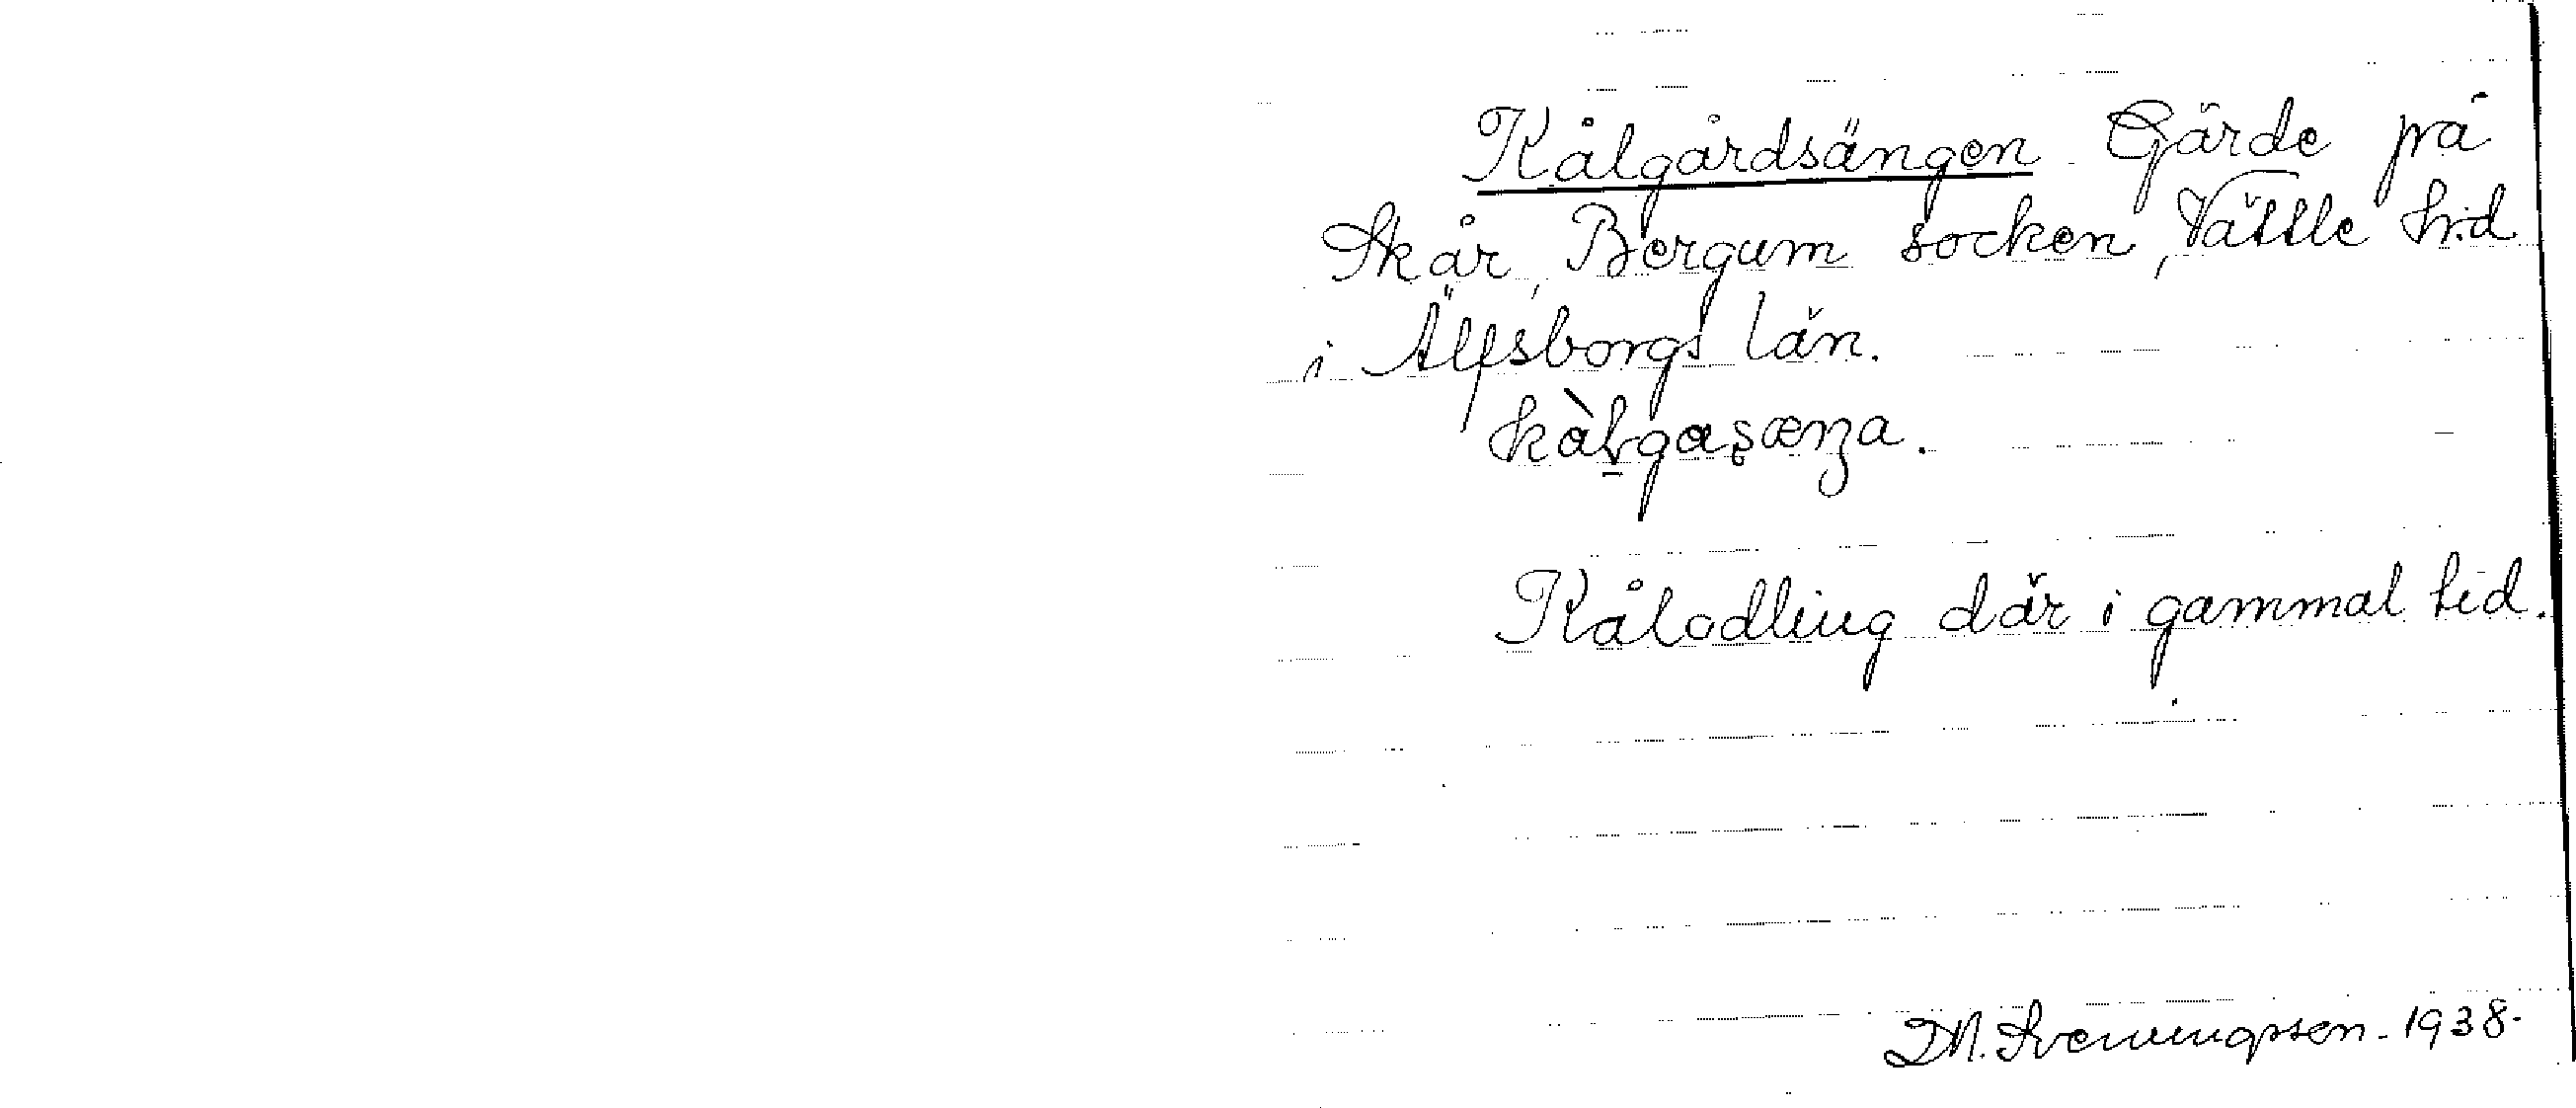 Kålgårdsängen. Gärde på
Skår, Bergum socken, Vättle hrd
i Älfsborgs län.
kàḷgaşæŋa.
Kålodling där i gammal tid.
M. Svenningsson. 1938.